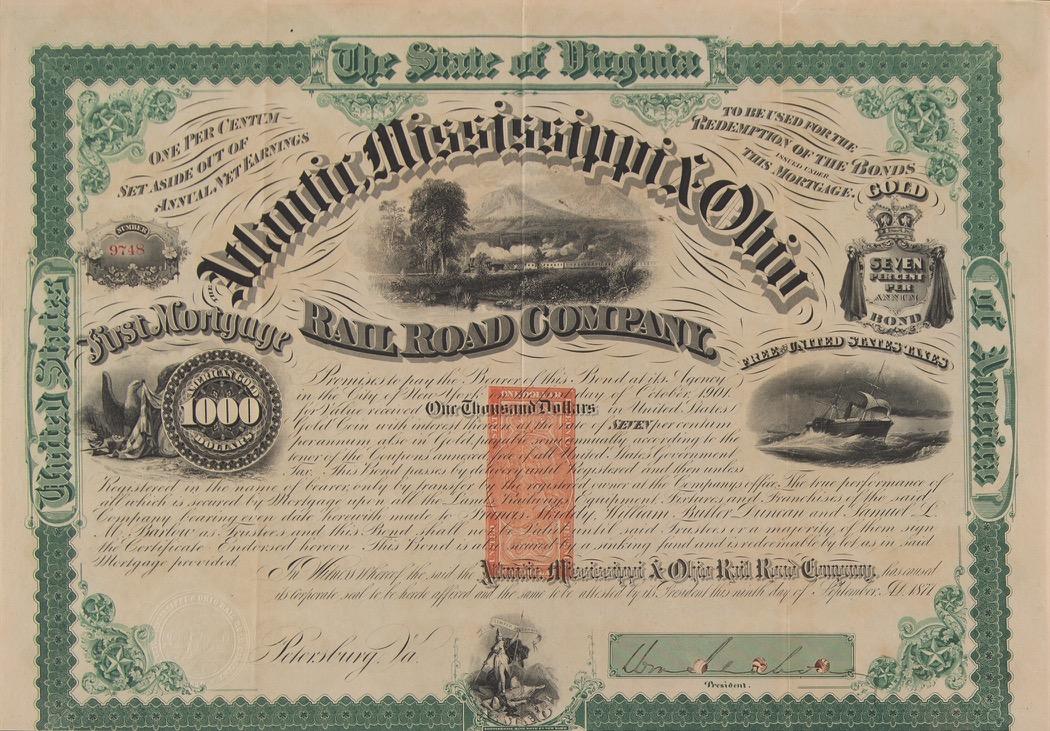 The State of Virginia
United States
of America
ONE PER CENTUM
SET ASIDE OUT OF
ANNUAL NET EARNINGS
TO BE USED FOR THE
REDEMPTION OF THE BONDS
ISSUED UNDER
THIS MORTGAGE.
NUMBER
9748
The Atlantic, Mississippi & Ohio
RAIL ROAD COMPANY
GOLD
SEVEN
PERCENT
PER
ANNUM
BOND
First Mortgage
FREE FROM UNITED STATES TAXES
AMERICAN GOLD
1000
DOLLARS
Promises to pay the Bearer of this Bond at its Agency
in the City of New day of October, 1901.
for Value received One Thousand Dollars in United States
Gold Coin with interest thereon at the rate of SEVEN per centum
per annum also in Gold, payable semi annually according to the
of the Coupons annexed free of all United States Government
Tax. This Bond passes by delivery until registered and then unless
Registered in the name of bearer, only by transfer by the registered owner at the Company's office. The true performance of
all which is secured by Mortgage upon all the Lands, Railways, Equipment, Fixtures and Franchises of the said
Company bearing even date herewith made to William Butler Duncan and Samuel L.
M. Barlow as Trustees and this Bond shall not be until said Trustees or a majority of them sign
the Certificate Endorsed hereon. This Bond is also secured by a sinking fund and is redeemable by lot as in said
Mortgage provided.
In Witness whereof the said the Atlantic, Mississippi & Ohio Rail Road Company, has caused
its corporate seal to be hereto affixed and the same to be attested by its President this ninth day of September, A.D. 1871
ONE DOLLAR
Petersburg, Va.
President.